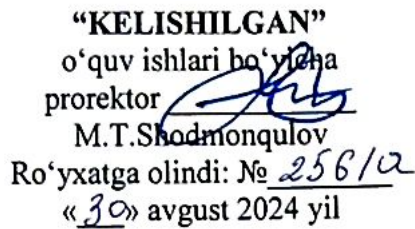 “KELISHILGAN”
o‘quv ishlari bo‘yicha
prorektor
M.T.Shodmonqulov
Ro‘yxatga olindi: № 256/a
«30» avgust 2024 yil